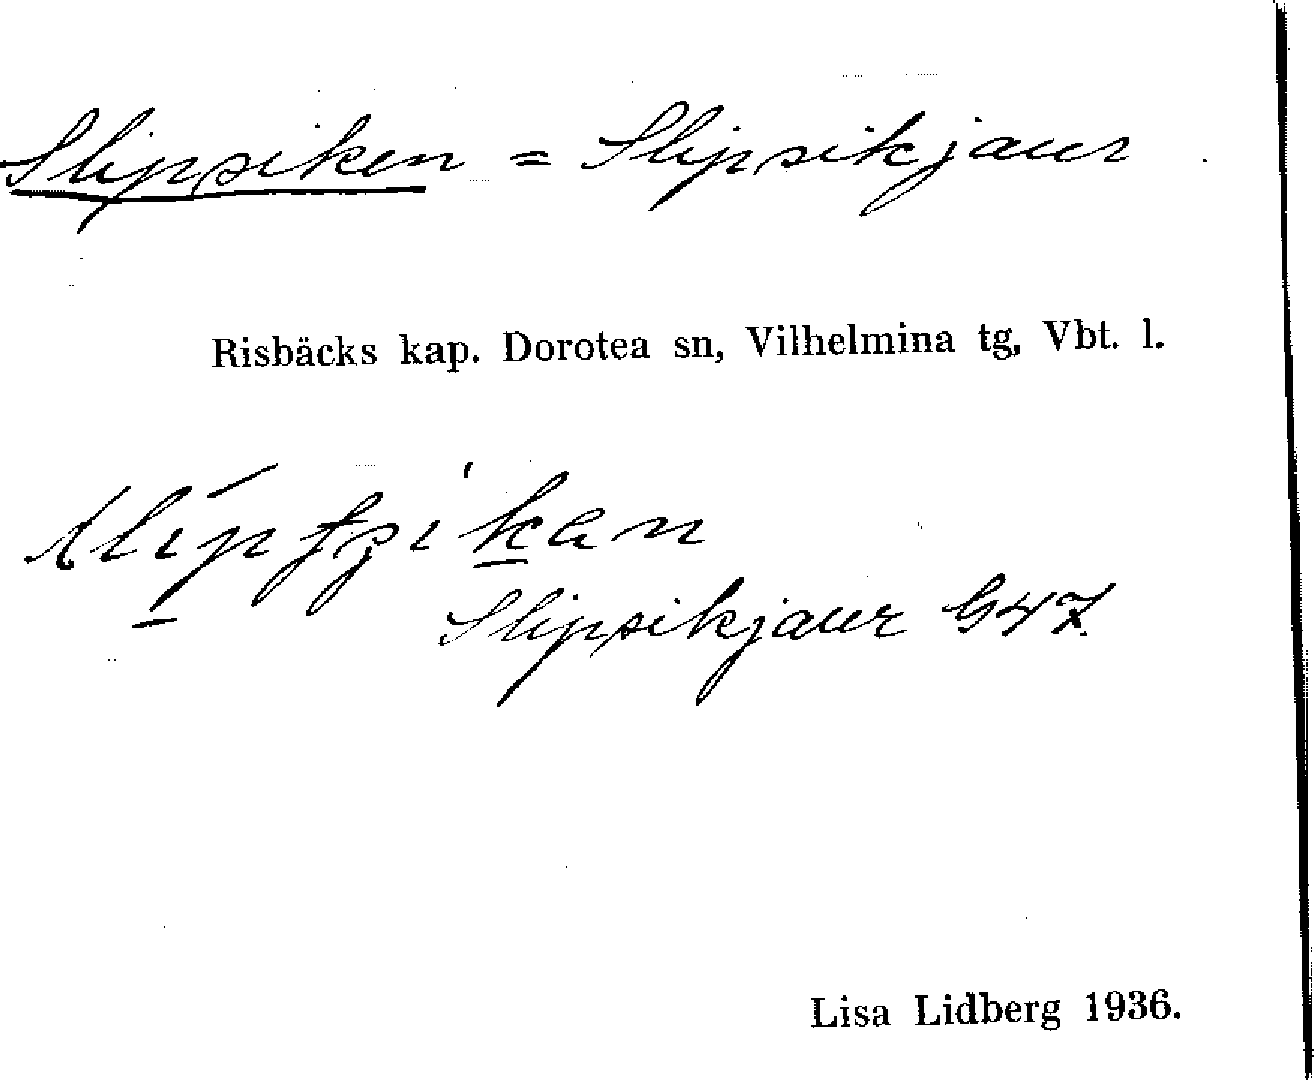 Slipsiken = Slipsikjaur
Risbäcks kap. Dorotea sn, Vilhelmina tg, Vbt. l.
Slipsikjaur G47.
Lisa Lidberg 1936.